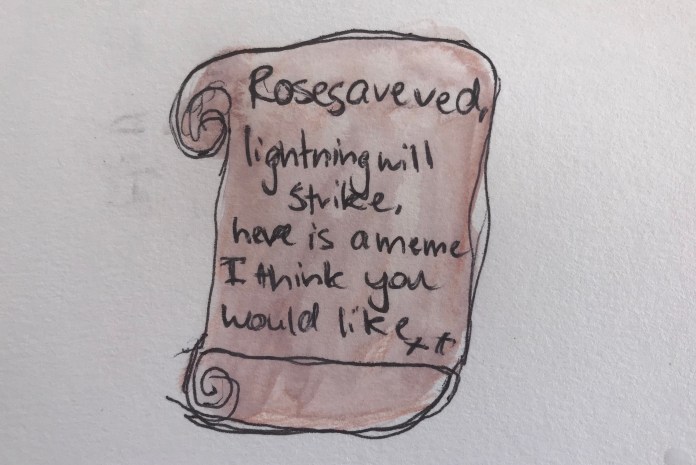 Roses are red,
lightning will
strike,
here is a meme
I think you
would like